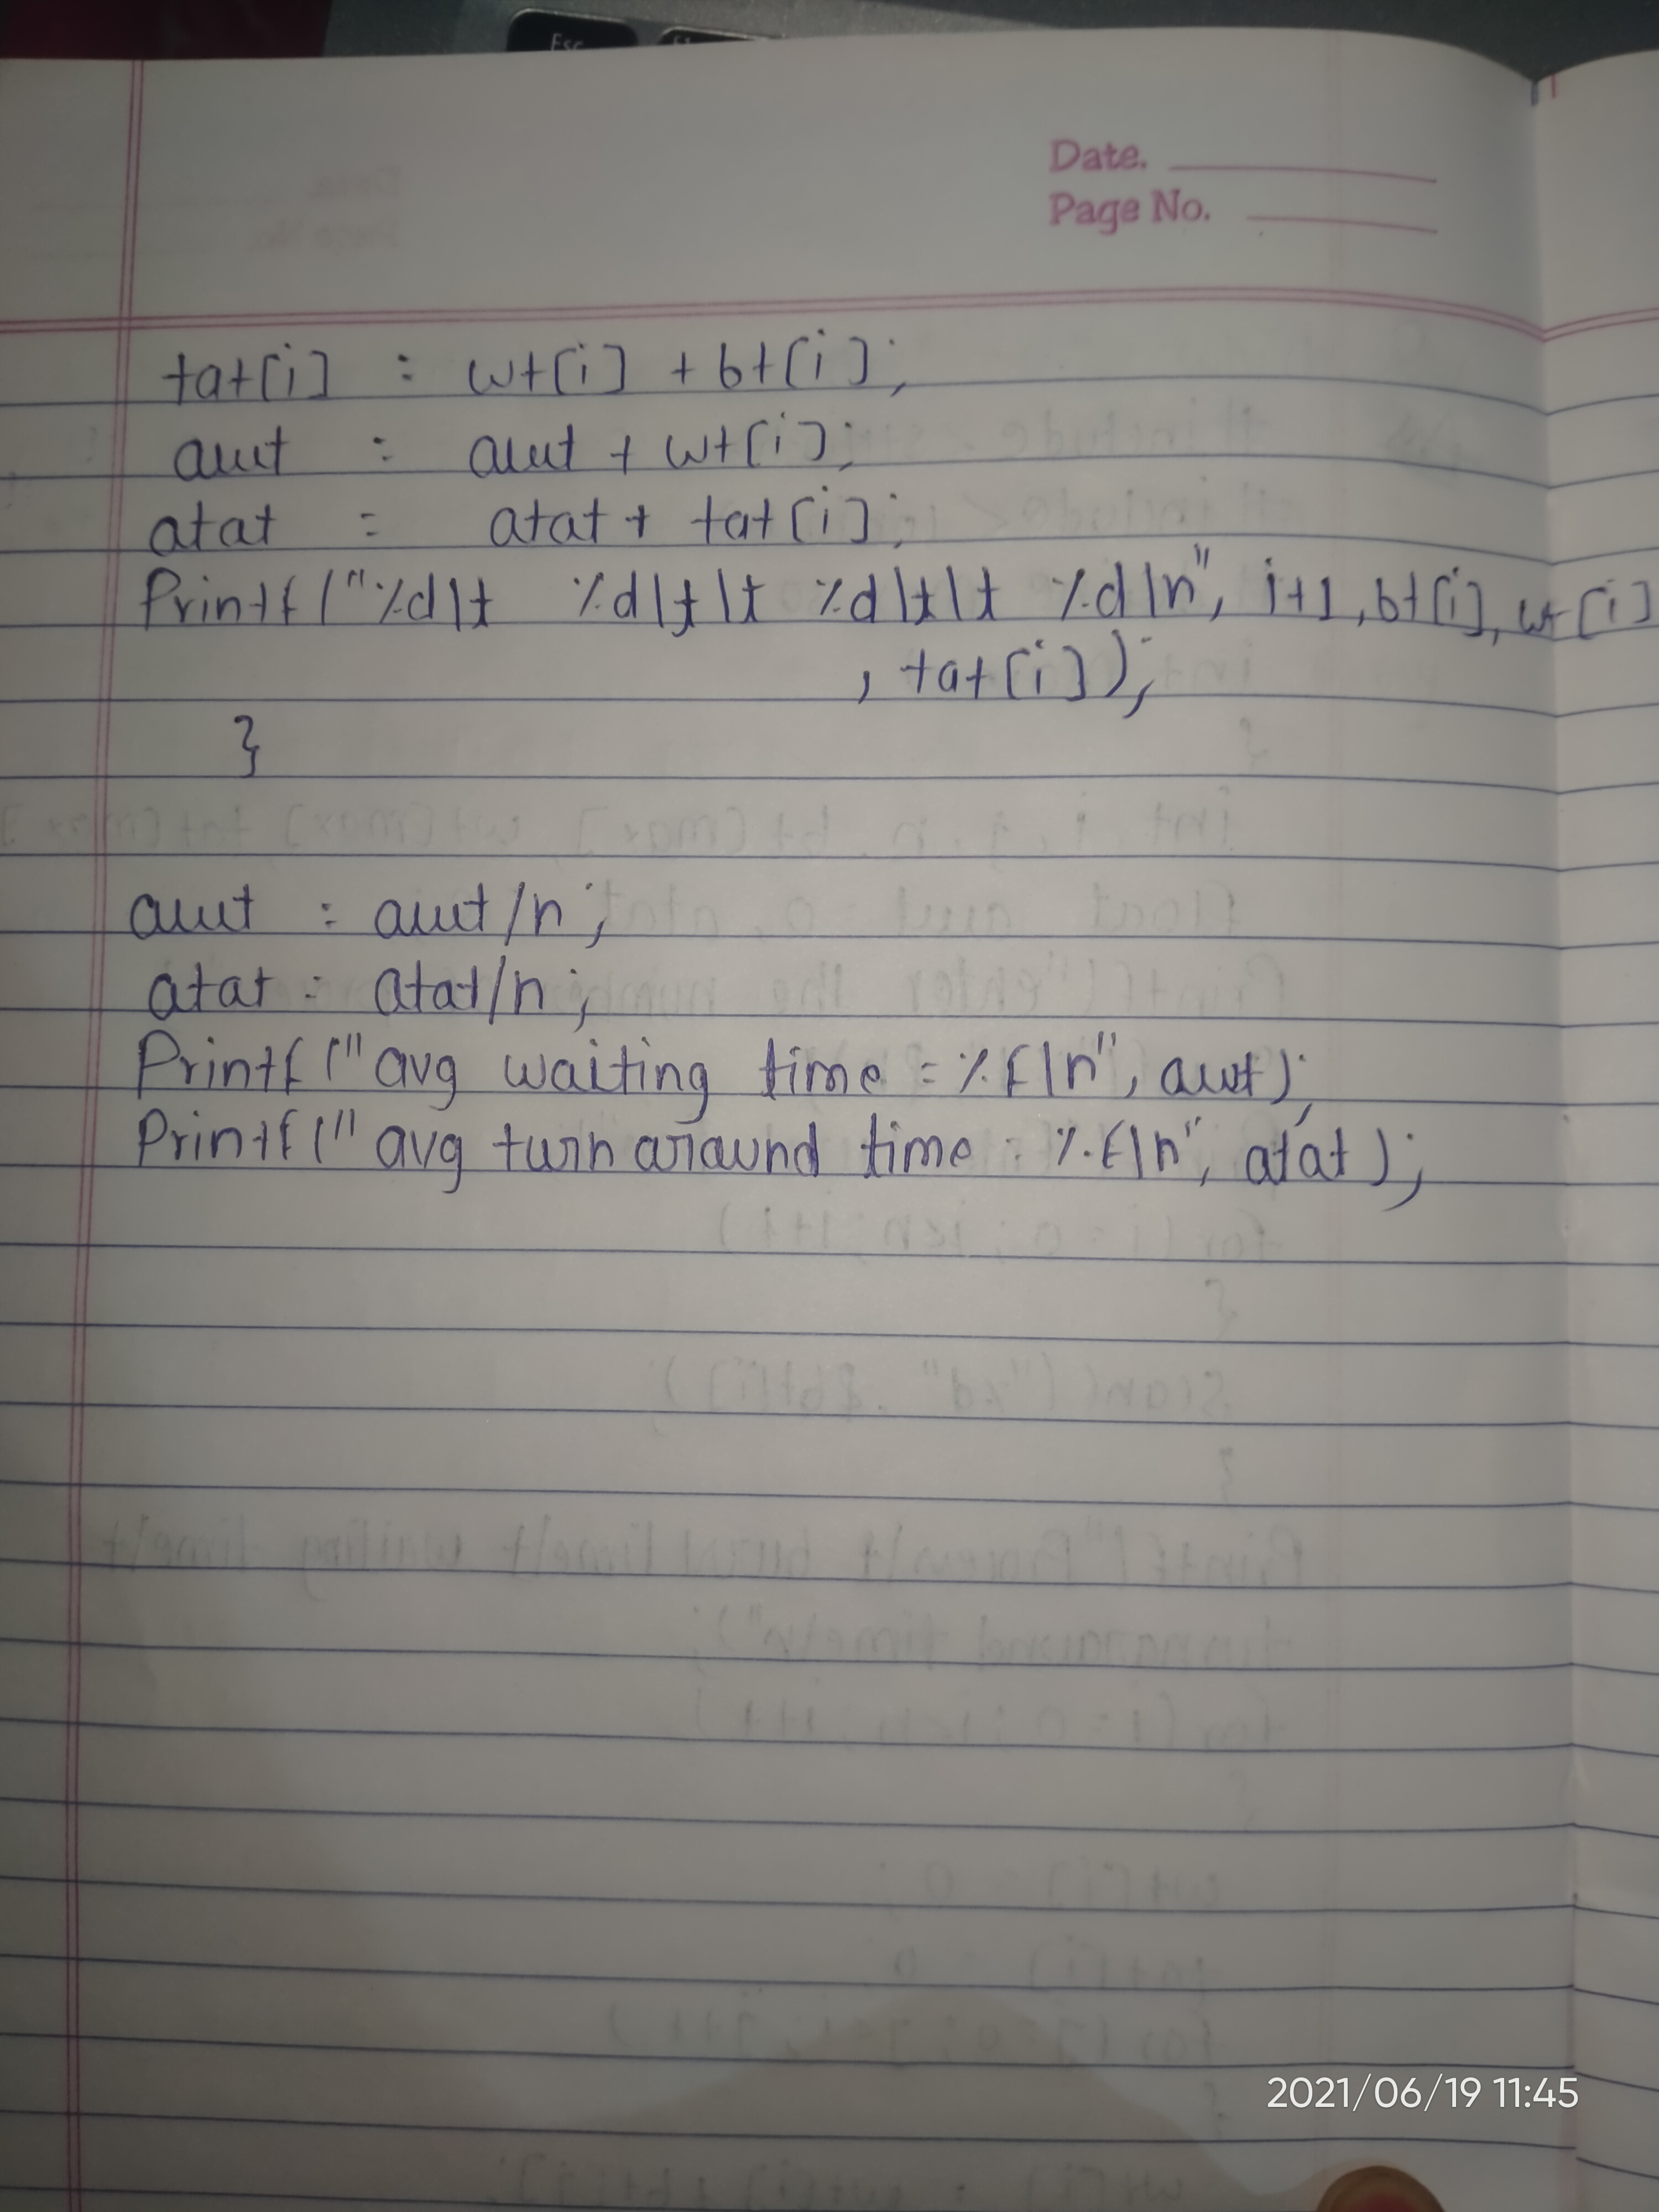 Esc
Date.
Page No.
tat[i] = wt[i] + bt[i];
awt = awt + wt[i];
atat = atat + tat[i];
Printf("%d\t %d\t\t %d\t\t %d\n", i+1, bt[i], wt[i]
, tat[i]);
}
awt = awt/n;
atat = atat/n;
Printf("avg waiting time = %f\n", awt);
Printf("avg turn around time = %f\n", atat);
2021/06/19 11:45